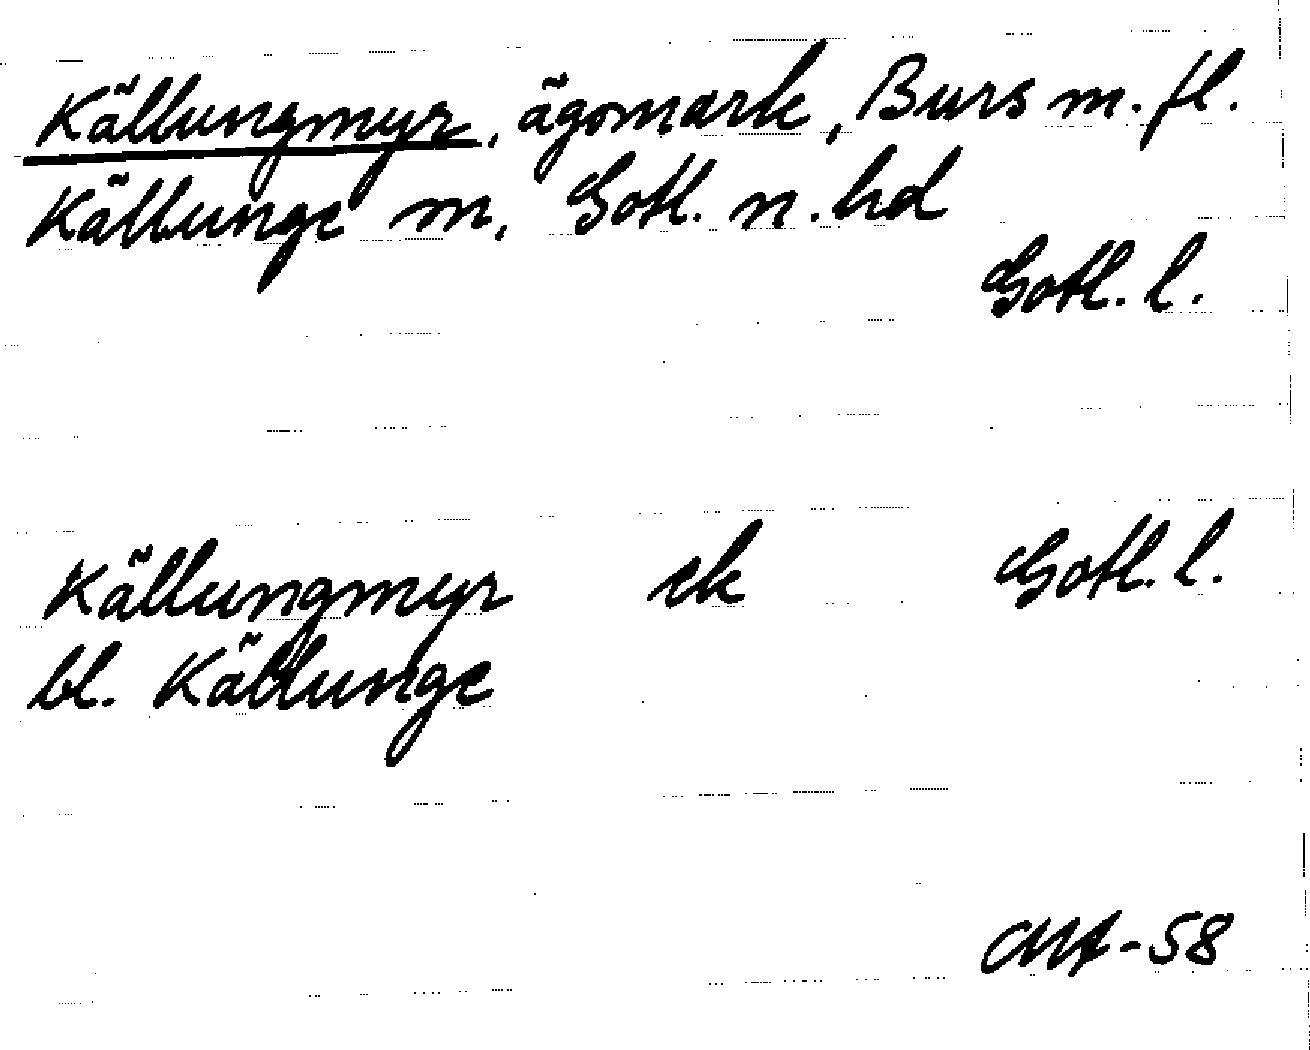 Källungmyr, ägomark, Burs m.fl.
Källunge m, Gotl. n. hd
Gotl. l.
Källungmyr ek Gotl. l.
bl. Källunge
-58